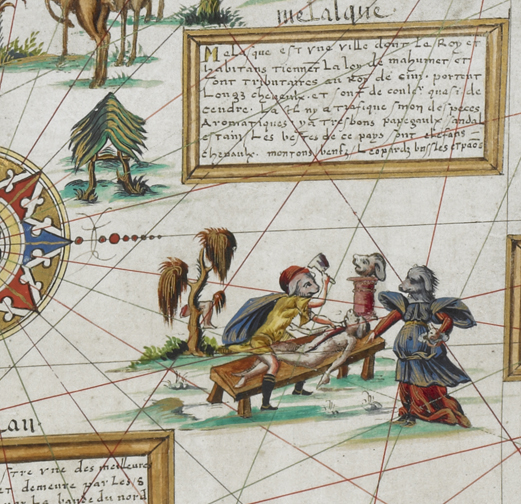 melaique
Melaique est vne ville dont Le Roy et
habitans tiennet La loy de mahumet et
sont tributaires au Roy de Ciny. portent
Longs cheueulx. et sont de couler quasi de
cendre. La il ny a trafique sinon despeces
Aromatiques. y a tresbons papegaulx sandal
estain, Les bestes de ce pays sont elefans
cheuaulx. moutons beufz Leopardz
vne des meilleures
et demeure par Les
La bande du nord